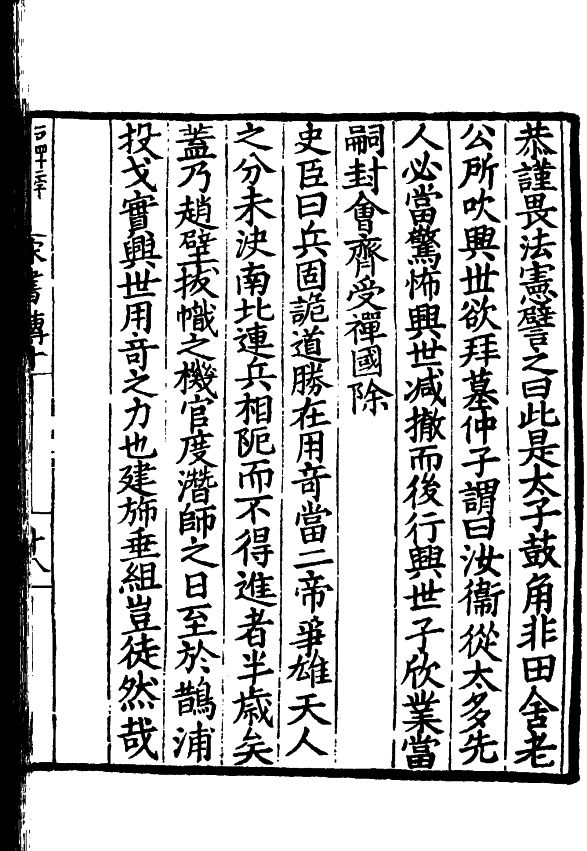 恭謹畏法憲譬之曰此是太子鼓角非田舍老
公所吹興世欲拜墓仲子謂曰汝衞從太多先
人必當驚怖興世减撤而後行興世子欣業當
嗣封會齊受禪國除
史臣曰兵固詭道勝在用奇當二帝爭雄天人
之分未決南北連兵相阨而不得進者半歲矣
蓋乃趙壁拔幟之機官度潛師之日至於鵲浦
投戈實興世用奇之力也建斾垂組豈徒然哉
宋書傳十
十八